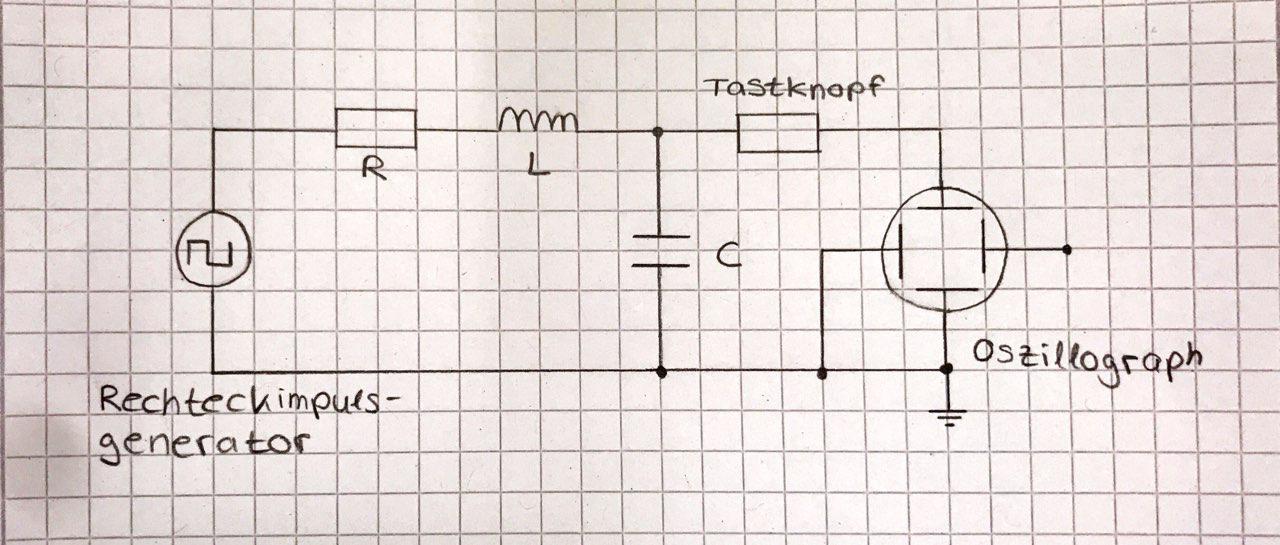 Tastknopf
R
L
C
Oszillograph
Rechteckimpuls-
generator